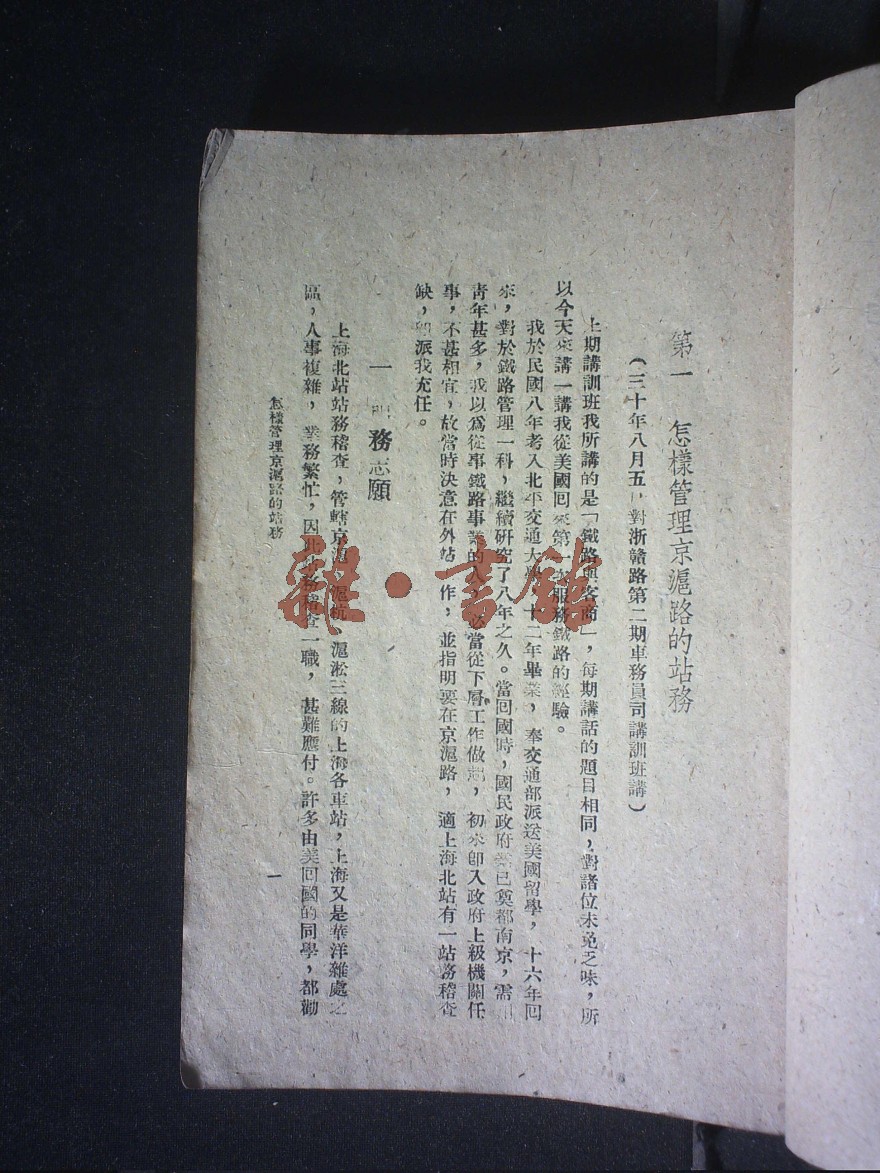 第一　怎樣管理京滬路的站務
（三十年八月五日對浙贛路第二期車務員司講訓班講）
上期講訓班我所講的是「鐵路與客商」，每期講話的題目相同，對諸位未免乏味，所
以今天來講一講我從美國回來第一次服務鐵路的經驗。
我於民國八年考入北平交通大學，十二年畢業，奉交通部派送美國留學，十六年回
來，對於鐵路管理一科，繼續研究了八年之久。當回國時，國民政府業已奠都南京，需
青年甚多，我以爲從事鐵路事業的人，必當從下層工作做起，初來卽入政府上級機關任
事，不甚相宜，故當時決意在外站工作，並指明要在京滬路，適上海北站有一站務稽查
缺，卽派我充任。
一　務志願
上海北站站務稽查，管轄京滬，滬杭，滬淞三線的上海各車站，上海又是華洋雜處之
區，人事複雜，業務繁忙，因此站務稽查一職，甚難應付。許多由美回國的同學，都勸
怎樣管理京滬路的站務
一
雜·書館